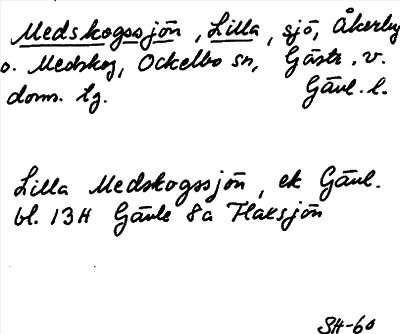 Medskogssjön, Lilla, sjö, Åkerby
o. Medskog, Ockelbo sn, Gästr. v.
doms. lg. Gävl. l.
Lilla Medskogssjön, ek Gävl.
bl. 13H Gävle 8a Flaksjön
SH-60